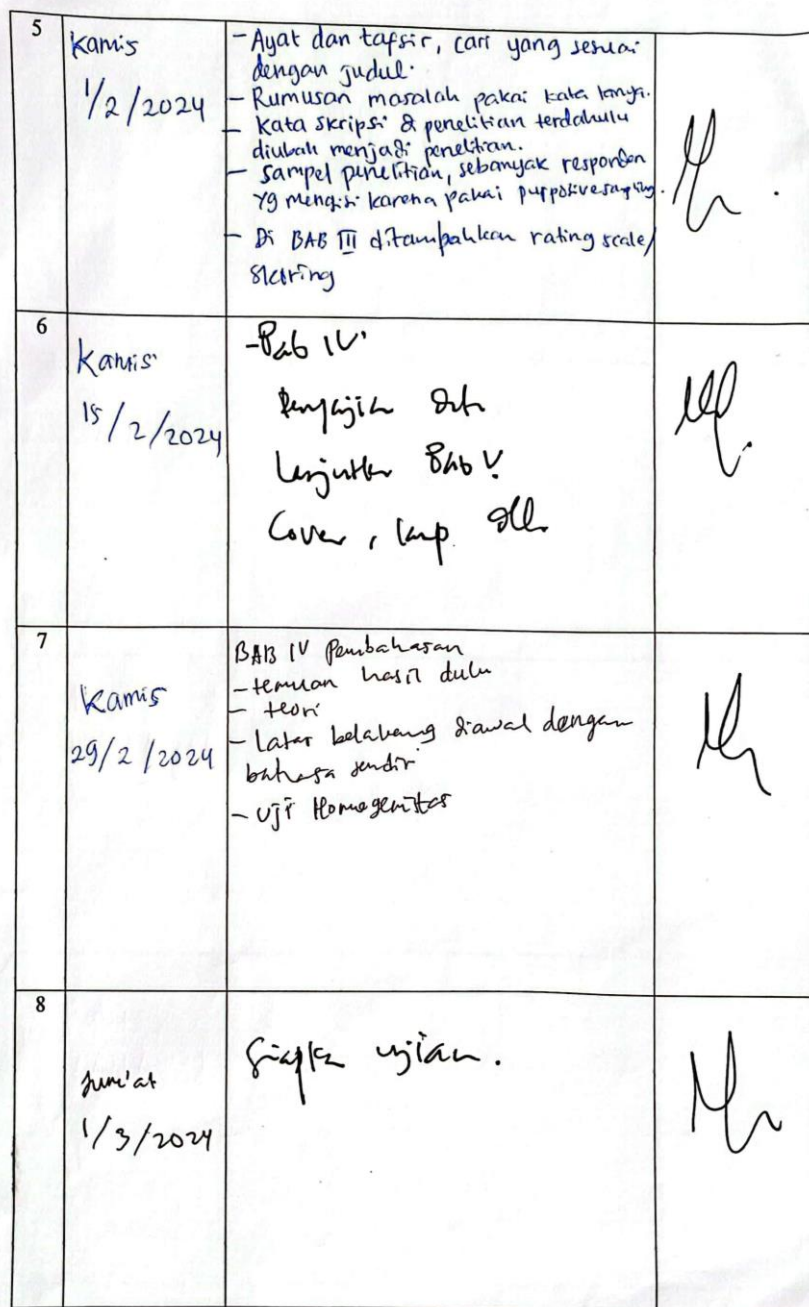 5
Kamis
1/2/2024
- Ayat dan tafsir, cari yang sesuai
dengan judul.
- Rumusan masalah pakai kata tanya.
- Kata skripsi & penelitian terdahulu
diubah menjadi penelitian.
- Sampel penelitian, sebanyak responden
yg mengisi karena pakai purposive sampling.
- Di BAB III ditambahkan rating scale/
skoring
6
Kamis
15/2/2024
- Bab IV
Penyajian data
Lanjutkan Bab V
Cover, lamp dll
7
Kamis
29/2/2024
BAB IV Pembahasan
- temuan hasil dulu
- teori
- Latar belakang diawal dengan
bahasa sendiri
- Uji Homogenitas
8
Jum'at
1/3/2024
Siapkan ujian.